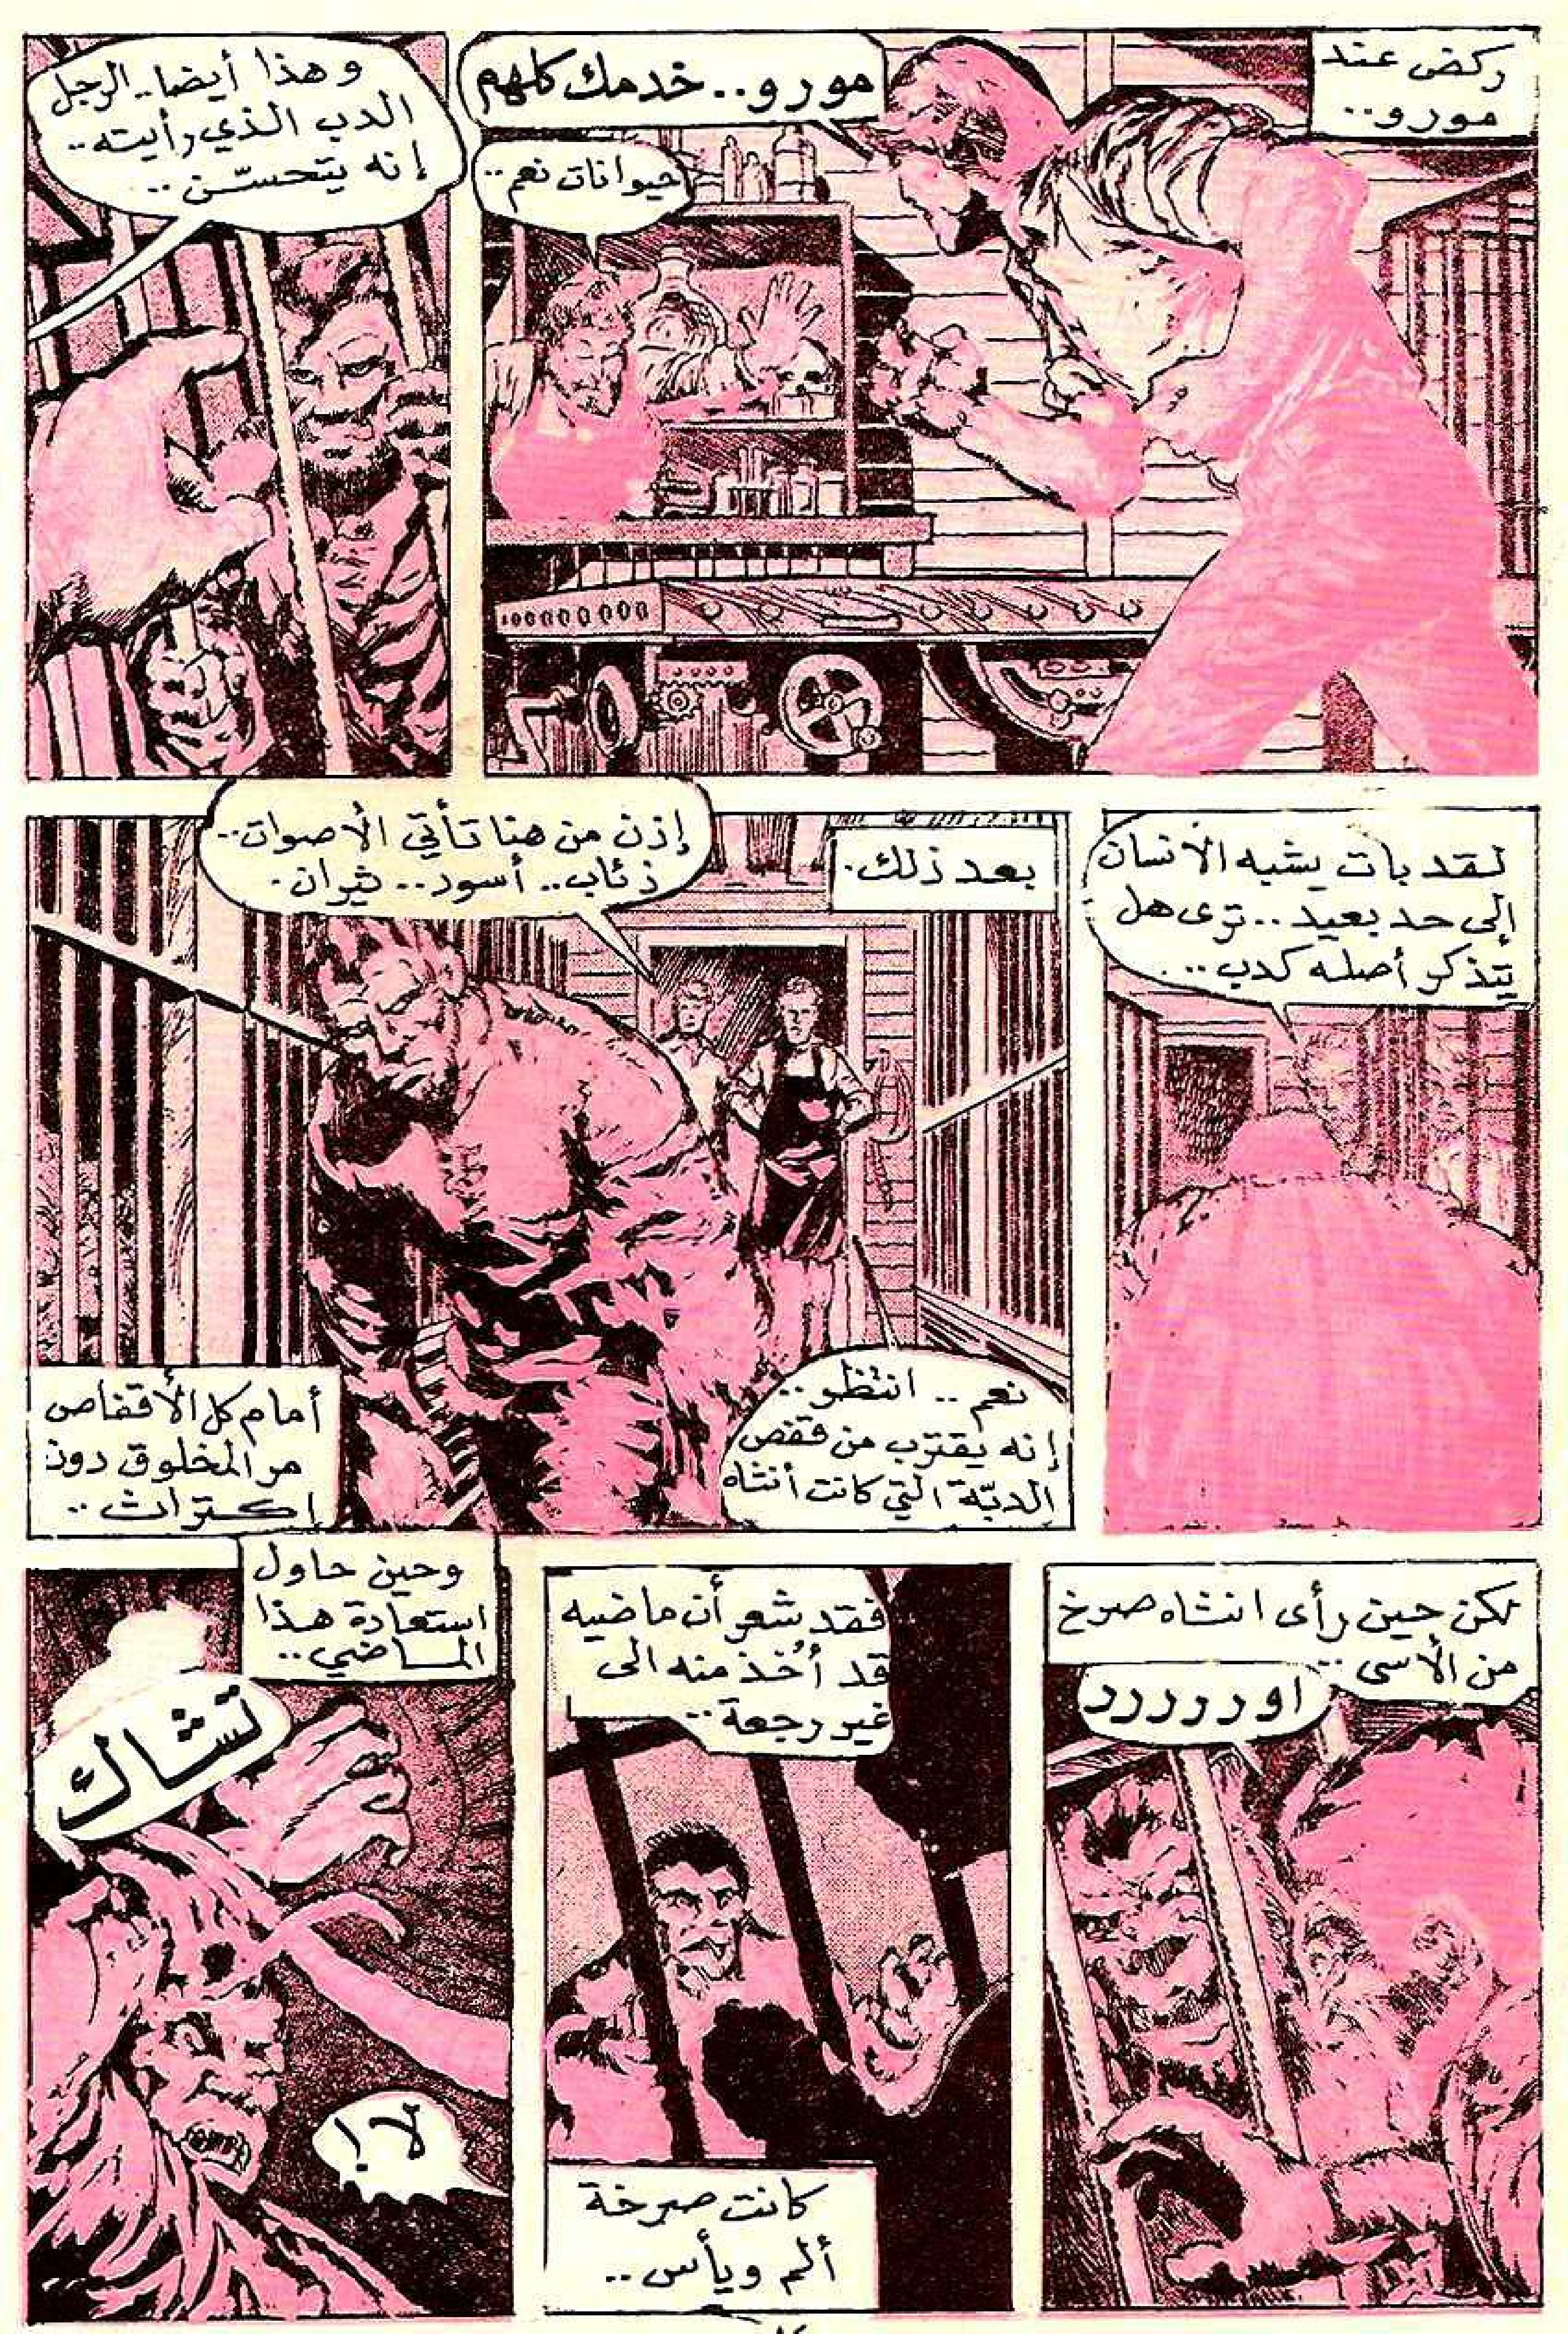 ركض عند
مورو..
مورو.. خدمك كلهم
حيوانات نعم..
وهذا أيضا.. الرجل
الدب الذي رأيته..
إنه يتحسّن..
لقد بات يشبه الانسان
إلى حد بعيد.. ترى هل
يتذكر أصله كدب..
بعد ذلك.
إذن من هنا تأتي الأصوات..
ذئاب.. أسود.. ثيران.
نعم.. انتظر..
إنه يقترب من قفص
الدبّة التي كانت أنثاه
أمام كل الأقفاص
مر المخلوق دون
إكتراث..
لكن حين رأى انثاه صرخ
من الأسى..
اورررررر
فقد شعر أن ماضيه
قد أُخذ منه الى
غير رجعة..
كانت صرخة
ألم ويأس..
وحين حاول
استعادة هذا
الماضي..
تشاك
لا!